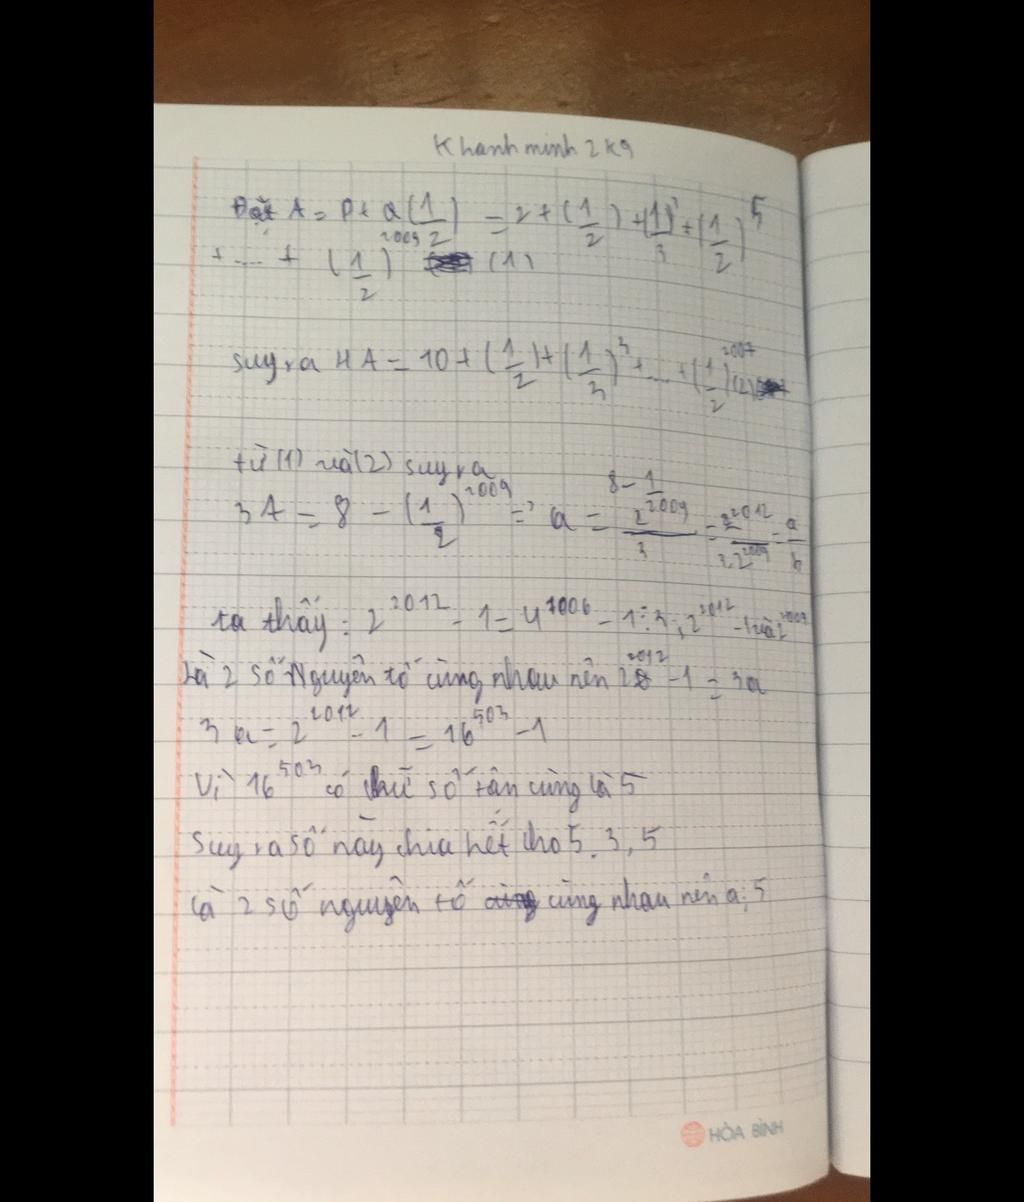 Khanh minh 2k9
Đặt A = P + Q(1/2) = 2 + (1/2) + (1/3)³ + (1/2)⁵
+ ... + (1/2)²⁰⁰⁹ (1)
suy ra 4A = 10 + (1/2) + (1/3)³ + ... + (1/2)²⁰⁰⁷ (2)
từ (1) và (2) suy ra
3A = 8 - (1/2)²⁰⁰⁹ => a = (8 - 1/2²⁰⁰⁹)/3 = 2²⁰¹²/3.2²⁰⁰⁹ = a/b
ta thấy : 2²⁰¹² - 1 = 4¹⁰⁰⁶ - 1 ⋮ 3 ; 2²⁰¹² - 1 và 2²⁰⁰⁹
Là 2 số Nguyên tố cùng nhau nên 2²⁰¹² - 1 = 3a
3a = 2²⁰¹² - 1 = 16⁵⁰³ - 1
Vì 16⁵⁰³ có chữ số tân cùng là 5
Suy ra số này chia hết cho 5. 3, 5
Là 2 số nguyên tố cùng nhau nên a ⋮ 5
HÒA BÌNH